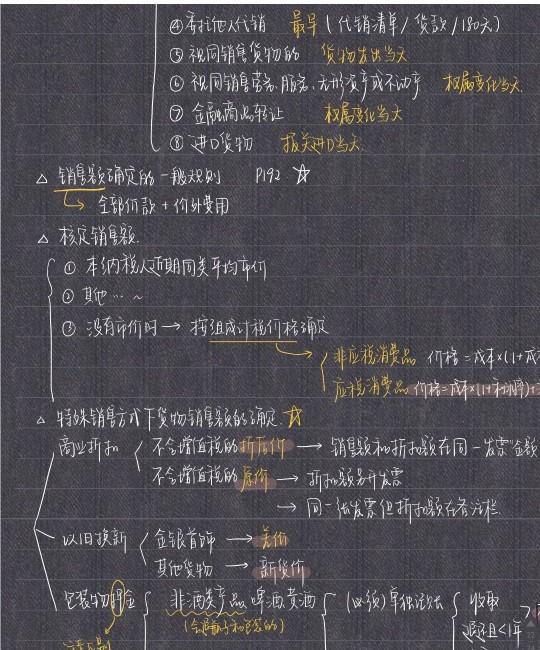 ④ 委托他人代销 最早(代销清单/货款/180天)
⑤ 视同销售货物的 货物发出当天
⑥ 视同销售劳务、服务、无形资产或不动产 权属变化当天
⑦ 金融商品转让 权属变化当天
⑧ 进口货物 报关进口当天
△ 销售额确定的一般规则 P192 ☆
↳ 全部价款 + 价外费用
△ 核定销售额.
① 本纳税人近期同类平均市价
② 其他… ~
③ 没有市价时 → 按组成计税价格确定
非应税消费品 价格 = 成本×(1+成
应税消费品 价格=成本×(1+利润率)+
△ 特殊销售方式下货物销售额的确定 ☆
商业折扣 不含增值税的折后价 → 销售额和折扣额在同一发票"金额
不含增值税的原价 → 折扣额另开发票
→ 同一张发票但折扣额在备注栏.
以旧换新 金银首饰 → 差价
其他货物 → 新货价
包装物押金 非酒类产品 啤酒、黄酒 (必须)单独记账 收取
退还且<1年